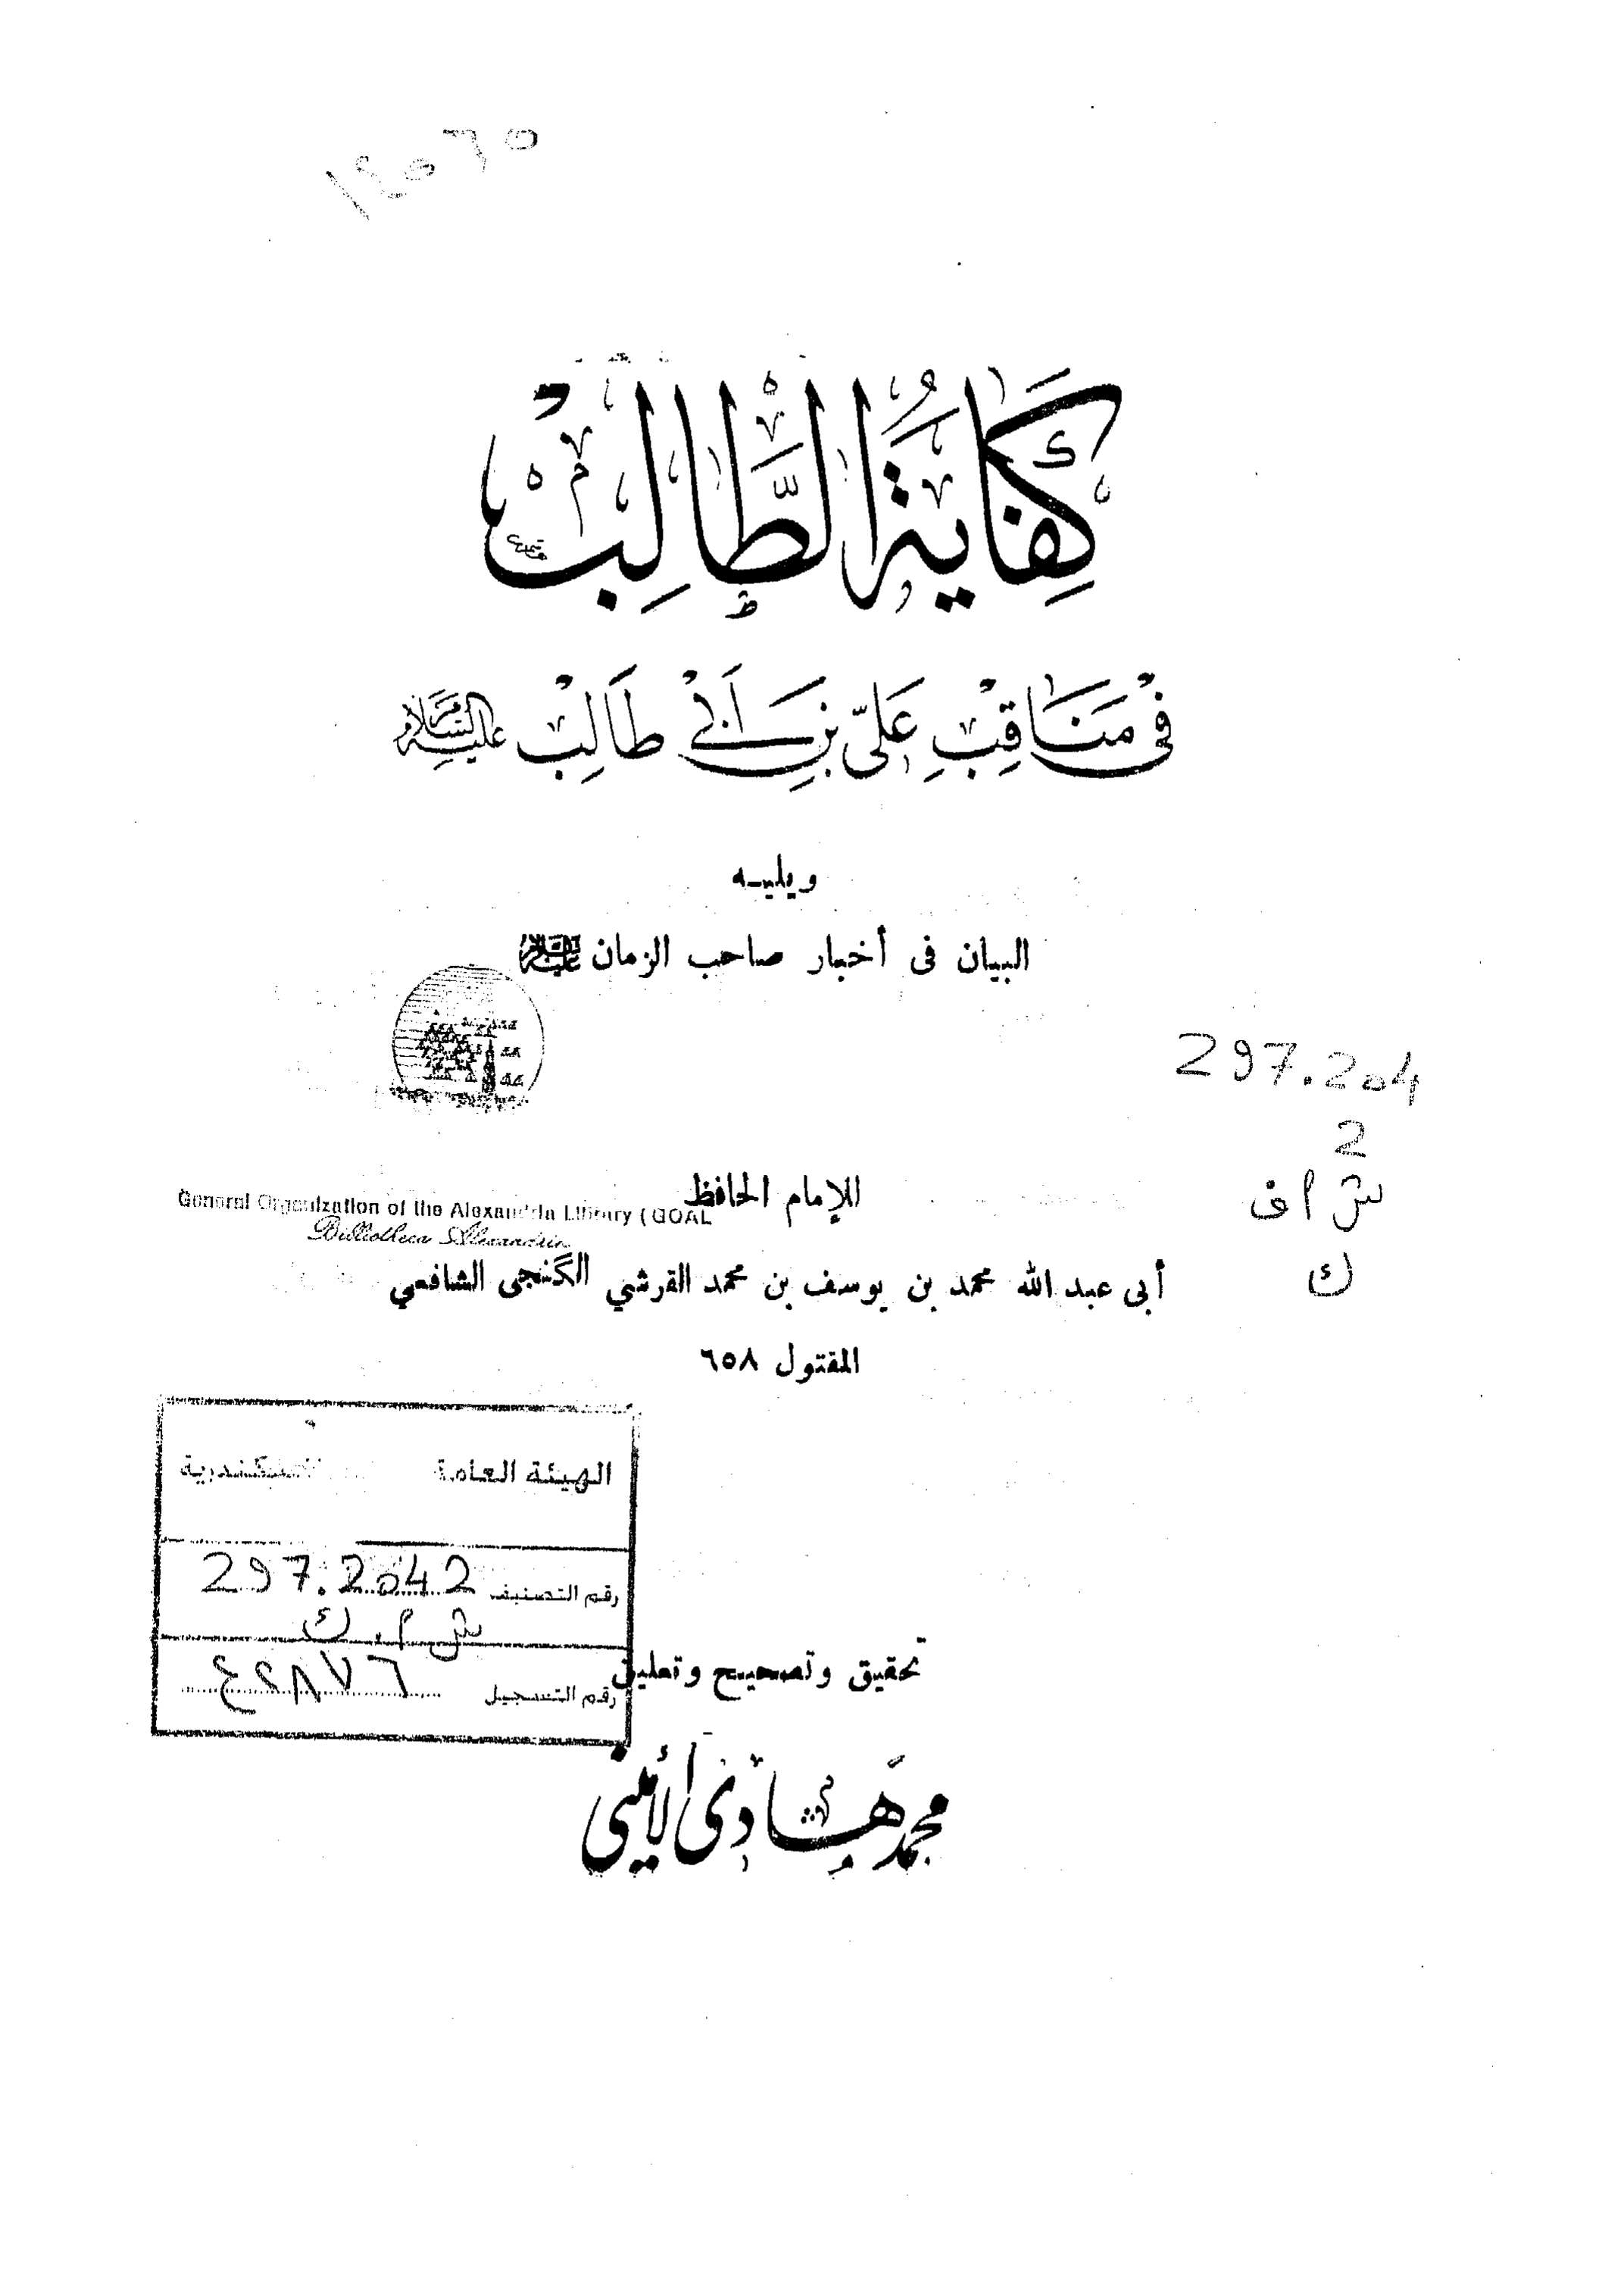 كِفَايَةُ الطَّالِبْ
فِى مَنَاقِبِ عَلِىّ بْنِ أَبْى طَالِبْ عليه السلام
ويليـه
البيان فى أخبار صاحب الزمان عليه السلام
297.204
2
للإمام الحافظ
General Organization of the Alexandria Library (GOAL
Bibliotheca Alexandrina
ك
أبى عبد الله محمد بن يوسف بن محمد القرشي الگنجى الشافعي
المقتول ٦٥٨
الهيئة العامة
رقم التصنيف 297.2042
ش م. ك
رقم التسجيل ٤٢٨٧٦
تحقيق وتصحيح وتعليق
محمد هادى الأمينى